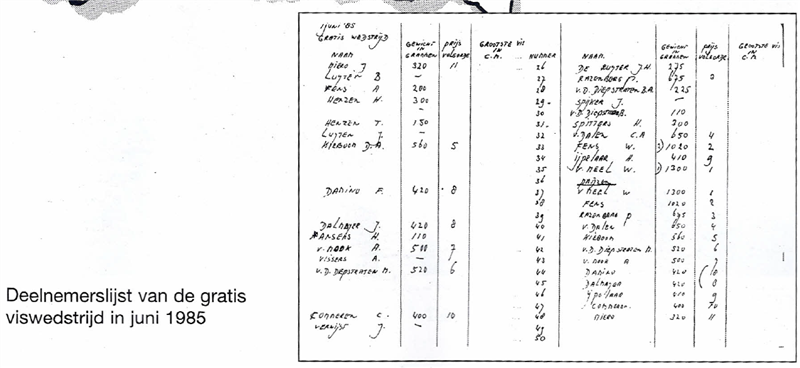 1 JUNI '85
GRATIS WEDSTRIJD
NAAM GEWICHT IN GRAMMEN PRIJS VOLGORDE GROOTSTE VIS C.M.
NIERO J 320 11
LUYTEN B –
FENS A 200
HENZEN W. 300
HENZEN T. 150
LUYTEN J. –
HIEBOON D.A. 560 5
DANINO F. 420 8
DALMEYER J. 420 8
JANSENS H. 110
V. NOOK A. 500 7
VISSERS A. –
V.D. DIEPSTRATEN M. 520 6
CONNEREN C. 400 10
VERWIJST J. –
NUMMER NAAM GEWICHT IN GRAMMEN PRIJS VOLGORDE GROOTSTE VIS C.M.
26 DE RUYTER J.H. 275
27 RAZENBERG P. 675
28 V.D. DIEPSTRATEN B.A. 225
29 SPIJKER J. –
30 V.D. DIEPSTR B. 110
31 SPITTERS H. 200
32 V. DALEN C.A 650 4
33 FENS W. 2) 1020 2
34 A. 410 9
35 V. NEEL W. 1) 1300 1
36
37 V NEEL W 1300 1
38 FENS 1020 2
39 P 675 3
40 V. DALEN 650 4
41 HIEBOON 560 5
42 V.D. DIEPSTRATEN M. 520 6
43 V. NOOK A 500 7
44 DANINO 420
45 DALMEYER 420 8
46 410 9
47 CONNEREN 400 10
48 NIERO 320 11
49
50
Deelnemerslijst van de gratis
viswedstrijd in juni 1985